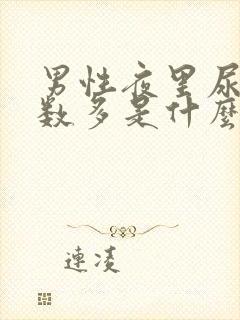 男性夜里尿
数多是什麼
連凌